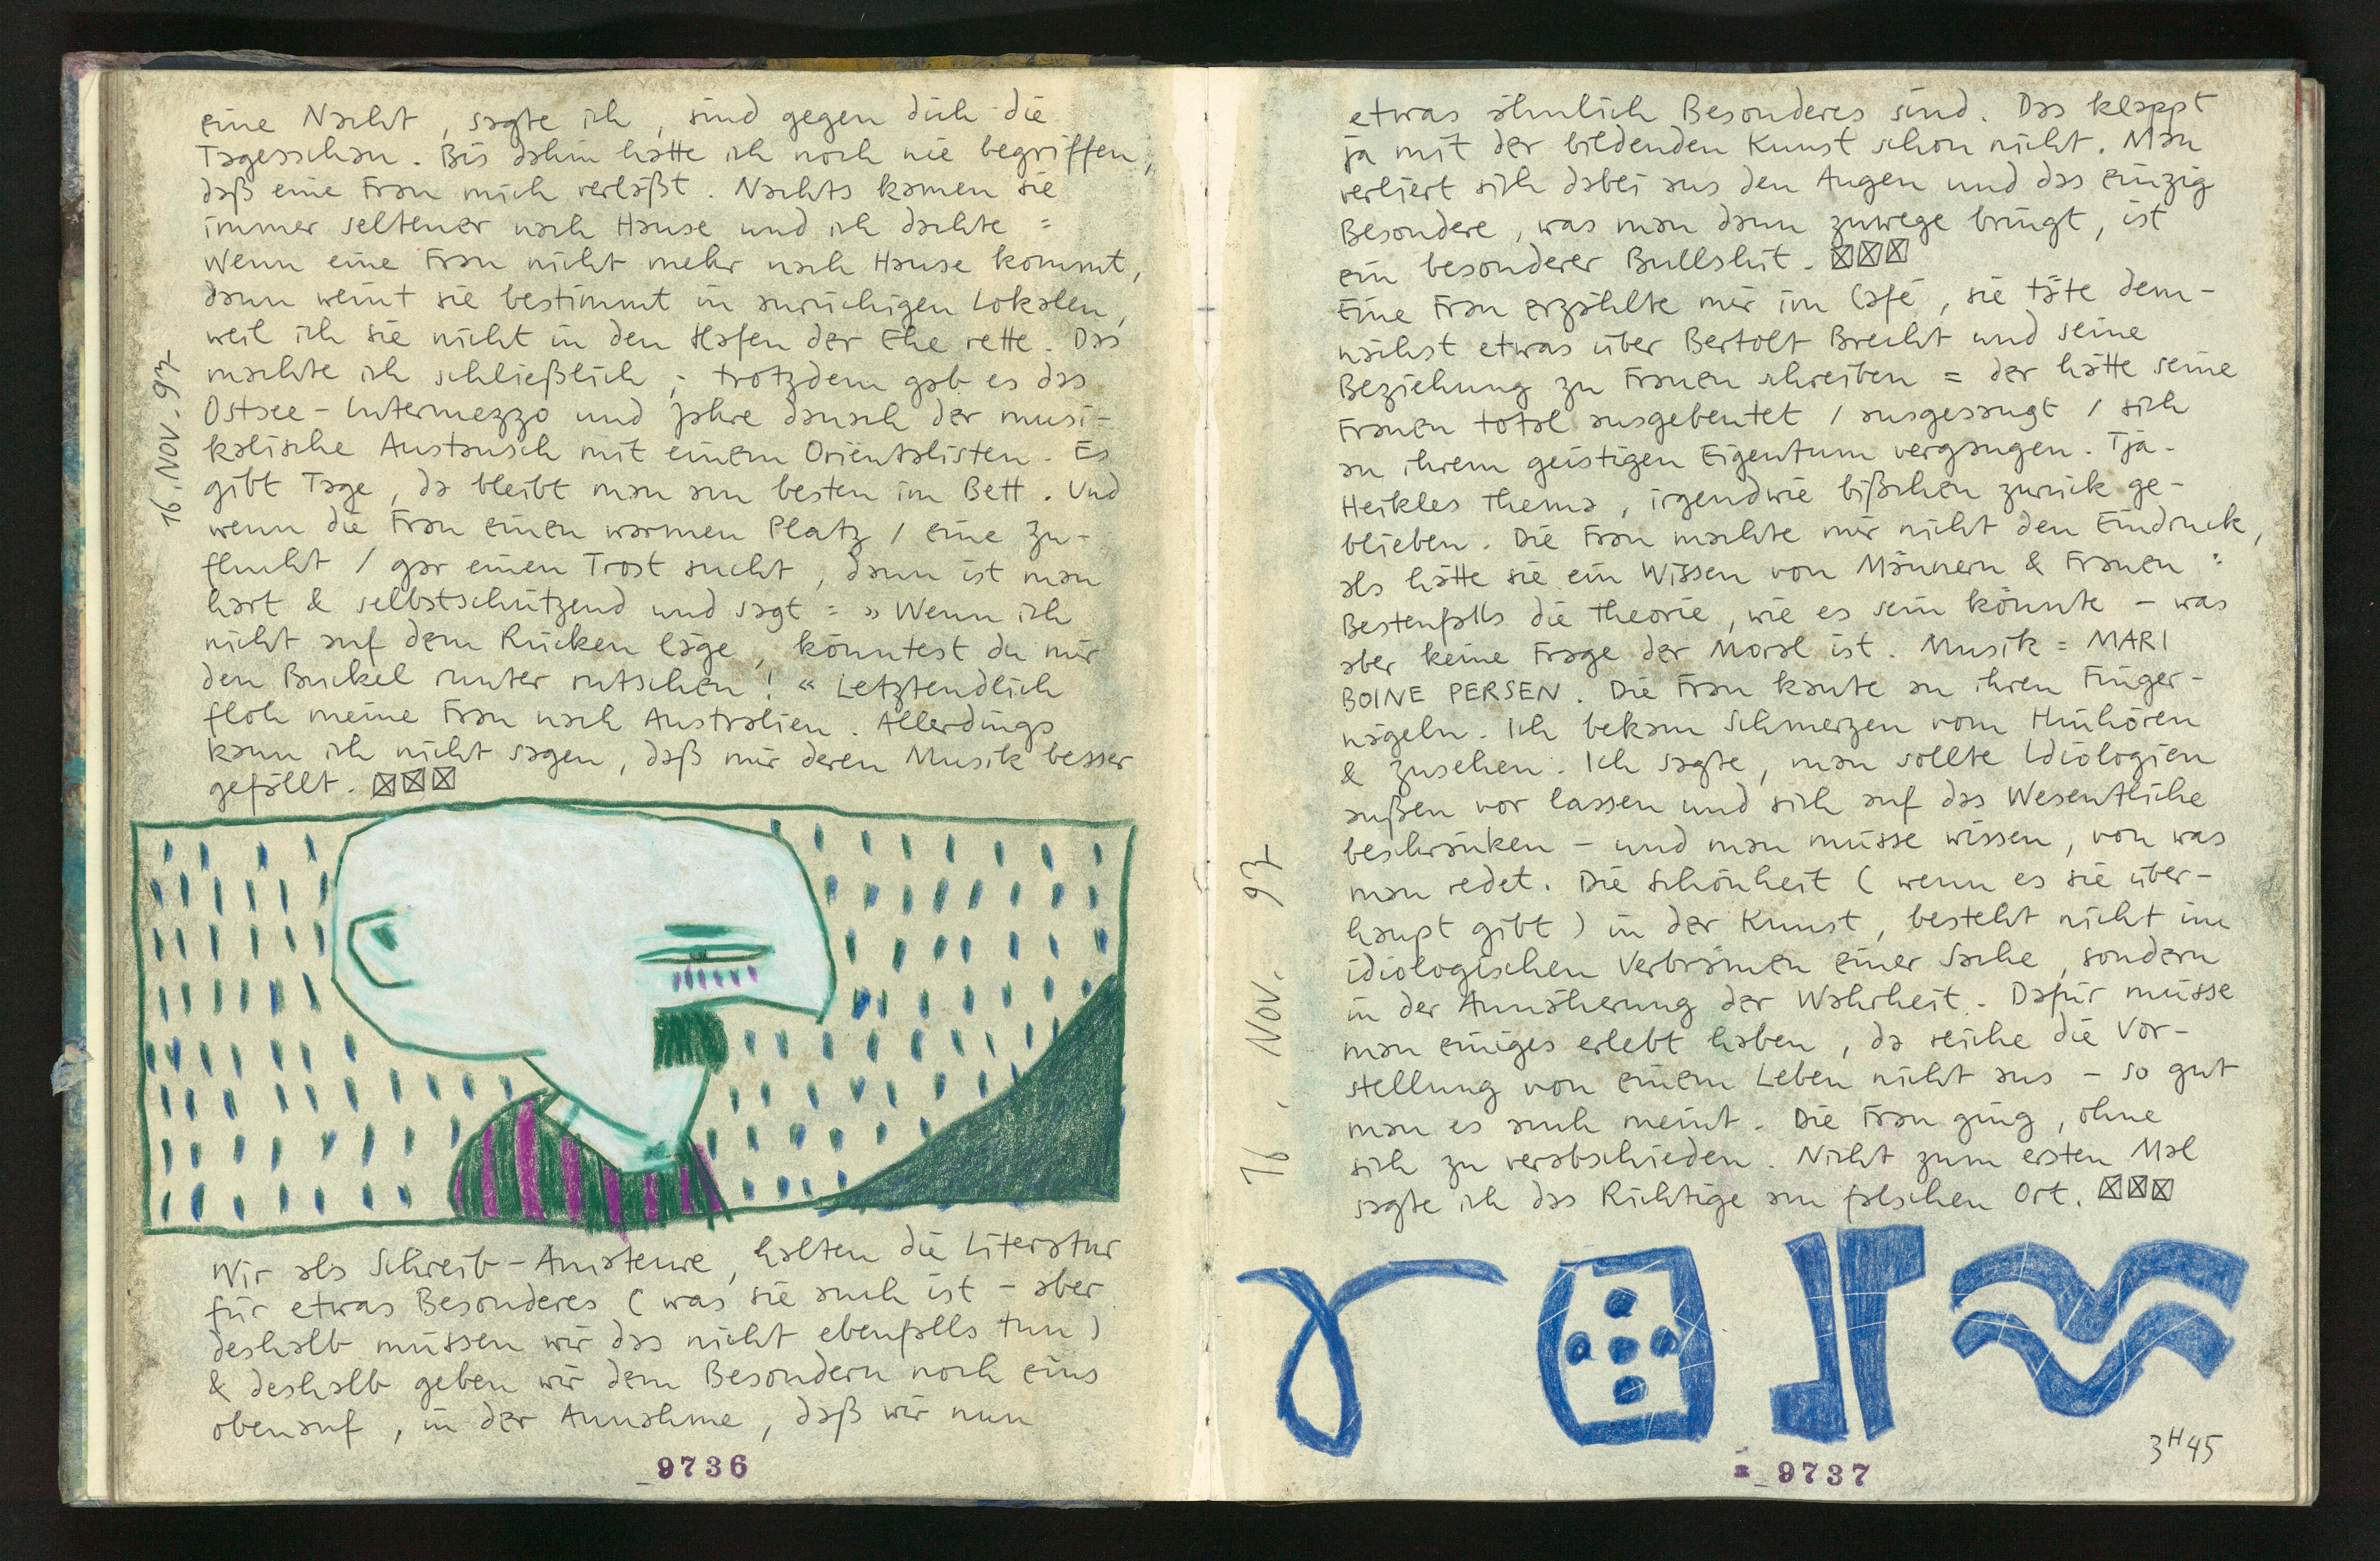 eine Nacht, sagte ich, sind gegen dich die
Tagesschau. Bis dahin hatte ich noch nie begriffen,
daß eine Frau mich verläßt. Nachts kamen sie
immer seltener nach Hause und ich dachte =
Wenn eine Frau nicht mehr nach Hause kommt,
dann weint sie bestimmt in anrüchigen Lokalen,
weil ich sie nicht in den Hafen der Ehe rette. Das
machte ich schließlich ; trotzdem gab es das
Ostsee-Intermezzo und Jahre danach der musi-
kalische Austausch mit einem Orientalisten. Es
gibt Tage, da bleibt man am besten im Bett. Und
wenn die Frau einen warmen Platz / eine Zu-
flucht / gar einen Trost sucht, dann ist man
hart & selbstschützend und sagt = » Wenn ich
nicht auf dem Rücken läge, könntest du mir
den Buckel runter rutschen ! « Letztendlich
floh meine Frau nach Australien. Allerdings
kann ich nicht sagen, daß mir deren Musik besser
gefällt.
16. Nov. 97
Wir als Schreib-Amateure, halten die Literatur
für etwas Besonderes ( was sie auch ist - aber
deshalb müssen wir das nicht ebenfalls tun )
& deshalb geben wir dem Besondern noch eins
obenauf, in der Annahme, daß wir nun
9736
etwas ähnlich Besonderes sind. Das klappt
ja mit der bildenden Kunst schon nicht. Man
verliert sich dabei aus den Augen und das einzig
Besondere, was man dann zuwege bringt, ist
ein besonderer Bullshit.
Eine Frau erzählte mir im Café, sie täte dem-
nächst etwas über Bertolt Brecht und seine
Beziehung zu Frauen schreiben = der hätte seine
Frauen total ausgebeutet / ausgesaugt / sich
an ihrem geistigen Eigentum vergangen. Tja.
Heikles Thema, irgendwie bißchen zurück ge-
blieben. Die Frau machte mir nicht den Eindruck,
als hätte sie ein Wissen von Männern & Frauen :
Bestenfalls die Theorie, wie es sein könnte - was
aber keine Frage der Moral ist. Musik = MARI
BOINE PERSEN. Die Frau kaute an ihren Finger-
nägeln. Ich bekam Schmerzen vom Hinhören
& zusehen. Ich sagte, man sollte Idiologien
außen vor lassen und sich auf das Wesentliche
beschränken - und man müsse wissen, von was
man redet. Die Schönheit ( wenn es sie über-
haupt gibt ) in der Kunst, besteht nicht im
idiologischen Verbrämen einer Sache, sondern
in der Annäherung der Wahrheit. Dafür müsse
man einiges erlebt haben, da reiche die Vor-
stellung von einem Leben nicht aus - so gut
man es auch meint. Die Frau ging, ohne
sich zu verabschieden. Nicht zum ersten Mal
sagte ich das Richtige am falschen Ort.
16. Nov. 97
3H45
9737